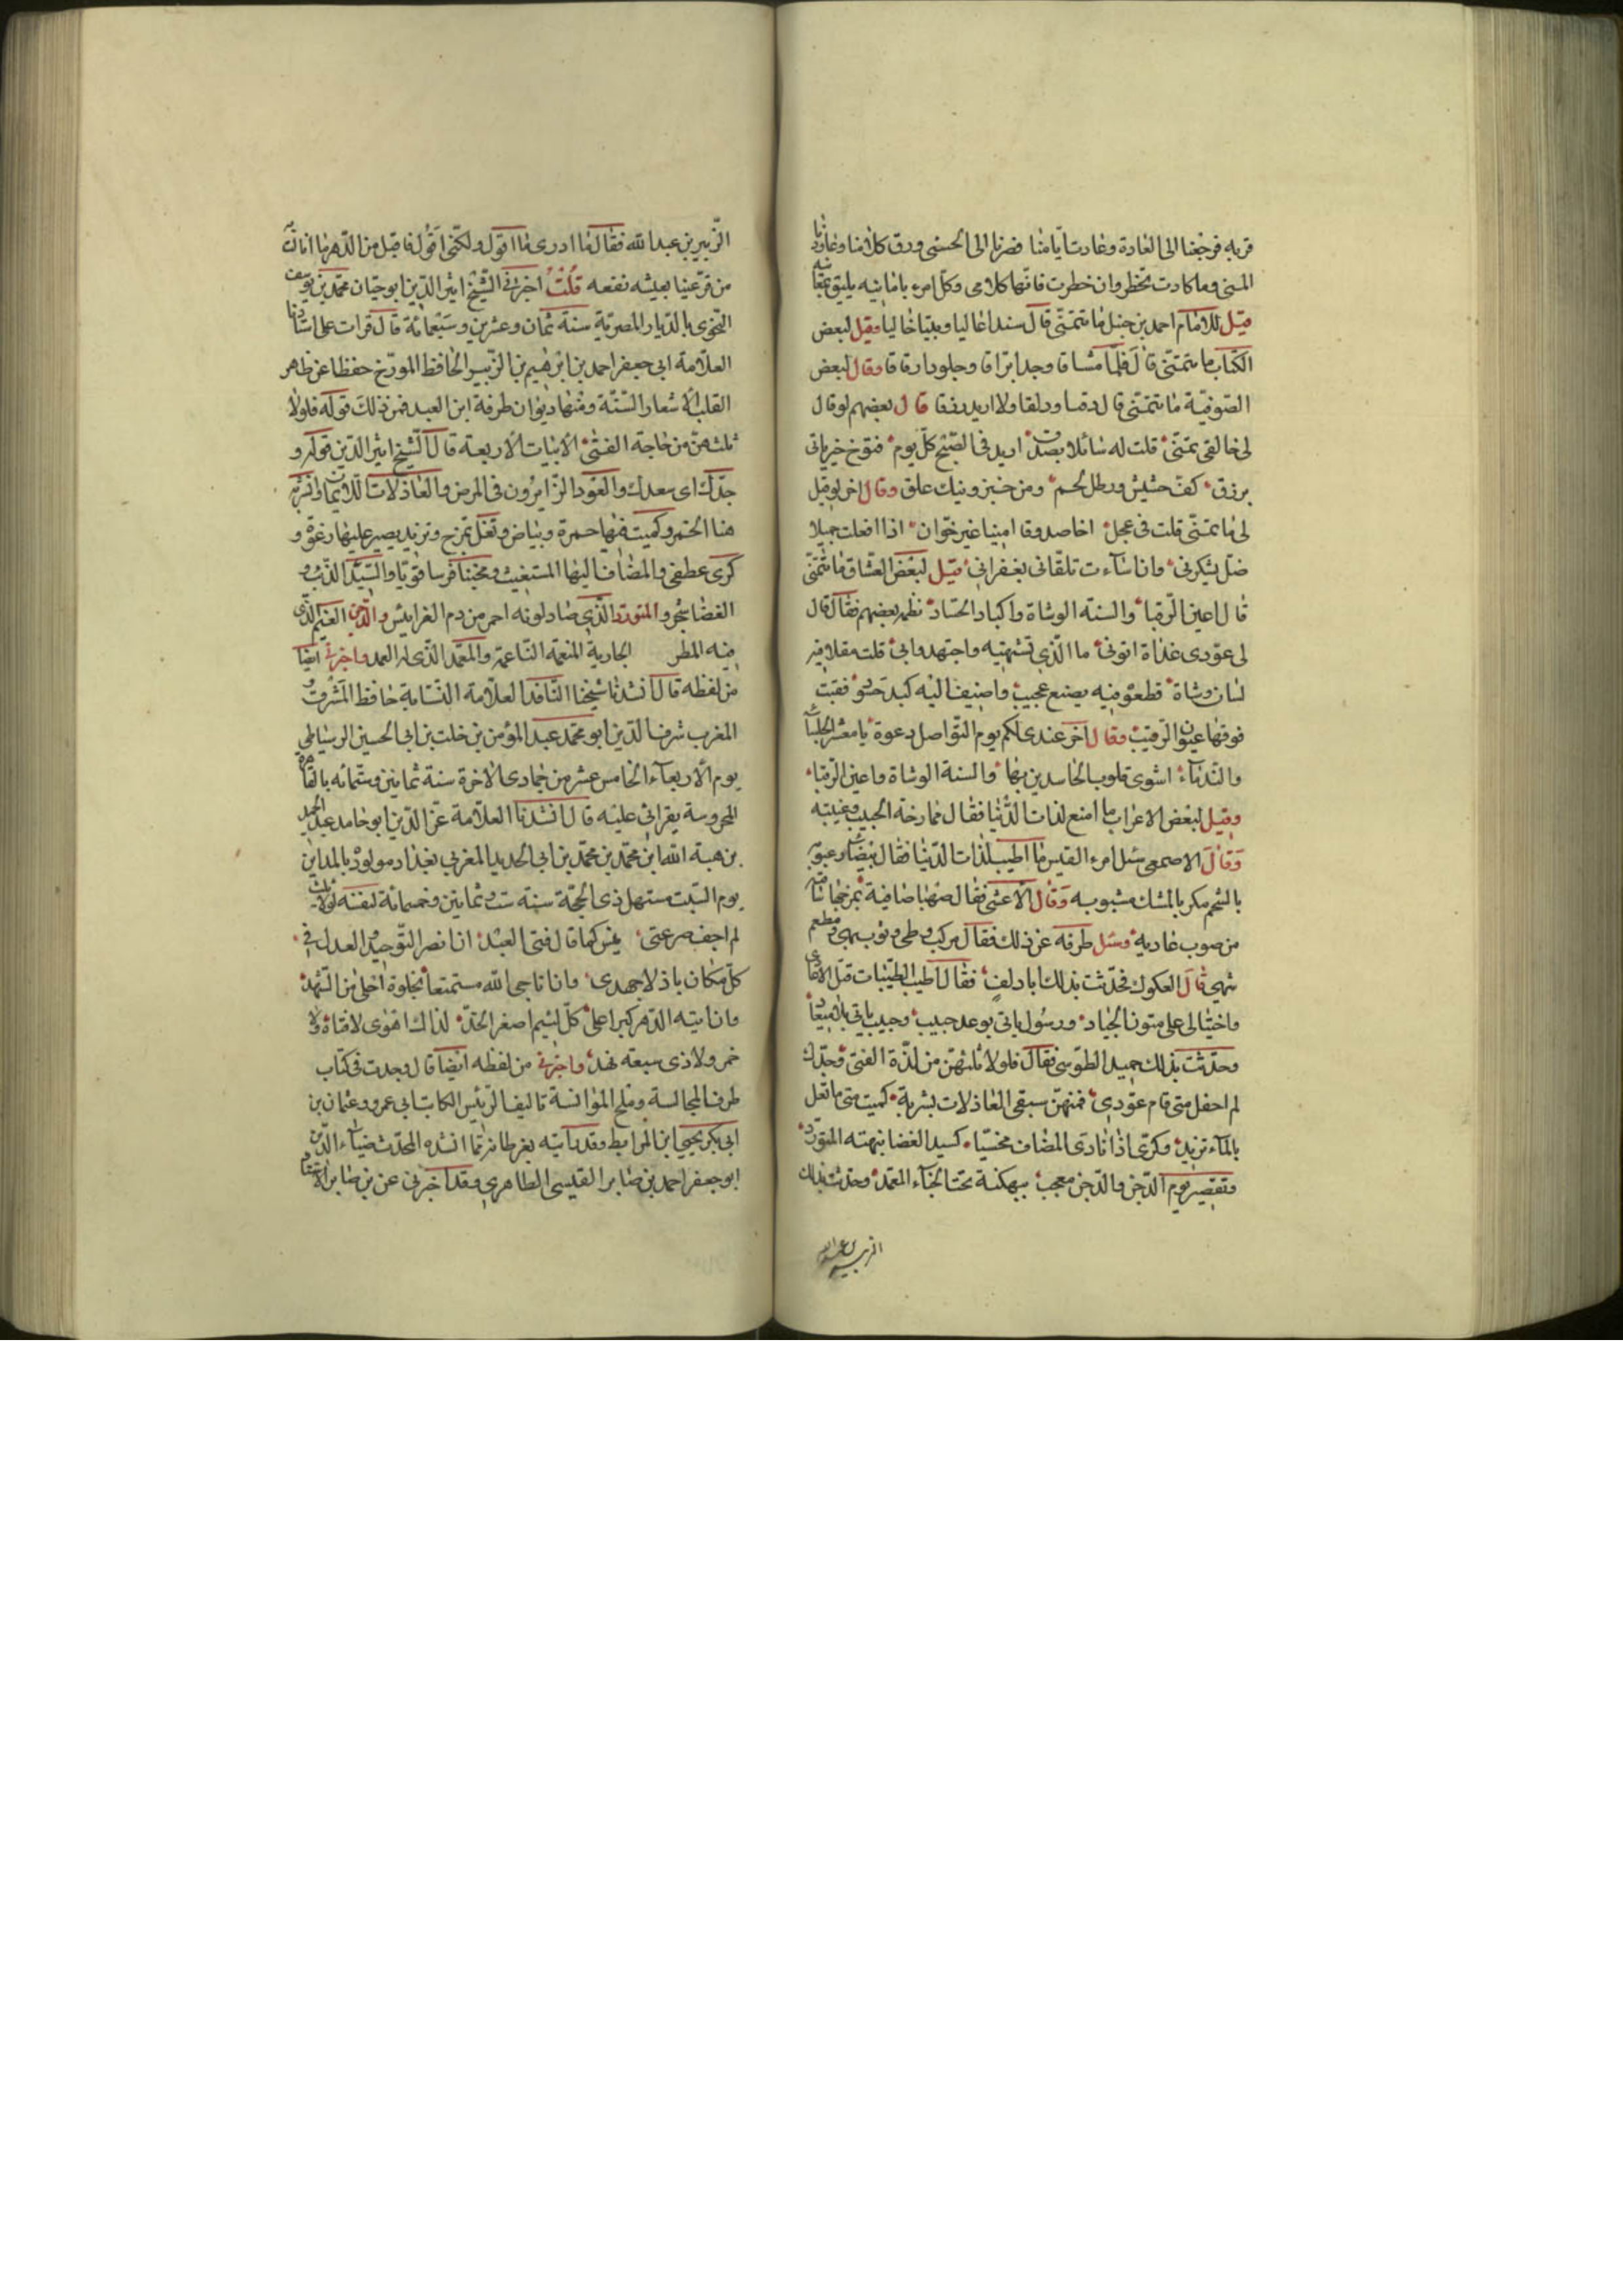 قربه فرجعنا الى العادة وعادت ايامنا فصرنا الى الحسنى ورق كلامنا
المنى وما كادت تخطر وان خطرت فانها كلامى وكل امرء بامانيه يليق
قيل للامام احمد بن حنبل ما تتمنى قال سندا عاليا وبيتا خاليا وقيل لبعض
الكتاب ما تتمنى قال قلما مشاقا وحبرا براقا وجلودا رقاقا وقال لبعض
الصوفية ما تتمنى قال دقنا ودلقا ولا اريد رزقا قال بعضهم لو قال
لى خالقى تمنى قلت له سائلا بصدق اريد فى الصبح كل يوم فتوح خير ياتى
برزق كف حشيش ورطل لحم ومن خبز ونيك علق وقال اخر لو قيل
لى ما تمنى قلت فى عجل اخا صدوقا امينا غير خوان اذا فعلت جميلا
ضل يشكرنى وان اسآءت تلقانى بغفرانى قيل لبعض العشاق ما تتمنى
قال اعين الرقبا والسنة الوشاة واكباد الحساد نظمه بعضهم فقال قال
لى عودى غداة اتونى ما الذى تشتهيه واجتهدوا بى قلت مقلا فيه
لسان وشاة قطعوه فيه بصنع عجيب واضيف اليه كبد حسود فقئت
فوقها عيون الرقيب وقال اخر عندى لكم يوم التواصل دعوة يا معشر الجلساء
والندمآء اشوى قلوب الحاسدين بها والسنة الوشاة واعين الرقبا
وقيل لبعض الاعراب ما امتع لذات الدنيا فقال ممازحة الحبيب وغيبته
وقال الاصمعى سئل امرء القيس ما اطيب لذات الدنيا فقال بيضاء رعبوبه
بالشحم مكر بالمسك مشبوبه وقال الاعشى فقال صهبا صافية تمزجها
من صوب غادية وسئل طرفة عن ذلك فقال مركب وطى وثوب بهى ومطعم
شهى قال العكوك فحدثت بذلك ابا دلف فقال اطيب الطيبات قتل الاعادى
واختيالى على متون الجياد ورسول ياتى بوعد حبيب وحبيب ياتى بلا ميعاد
وحدثت بذلك حميد الطوسى فقال فلولا ثلثهن من لذة الفتى وجدك
لم احفل متى قام عودى فمنهن سبقى العاذلات بشربة كميت متى ما تعل
بالمآء تزبد وكرى اذا نادى المضاف محنبا كسيد الغضا نبهته المتورد
وتقصير يوم الدجن والدجن معجب ببهكنة تحت الخبآء المعمد وحدثت بذلك
الزبير بن عبدالله
الزبير بن عبدالله فقال ما ادرى ما اقول ولكنى اقول فاقبل من الدهر ما اتاك به
من قر عينا بعيشه نفعه قلت اخبرنى الشيخ اثير الدين ابو حيان محمد بن يوسف
النحوى بالديار المصرية سنة ثمان وعشرين وسبعمائة قال قرات على استاذنا
العلامة ابى جعفر احمد بن ابرهيم بن الزبير الحافظ المورخ حفظا عن ظهر
القلب الاشعار الستة ومنها ديوان طرفة ابن العبد فمن ذلك قوله فلولا
ثلث هن من حاجة الفتى الابيات الاربعة قال الشيخ اثير الدين قوله و
جدك اى سعدك والعود الزايرون فى المرض والعاذلات اللايمات والشربة
هنا الخمر وكميت فيها حمرة وبياض وتعل تمزج وتزبد يصير عليها رغوة و
كرى عطفى والمضاف اليها المستغيث ومحنبا فرسا قويا والسيد الذئب و
الغضا شجر والمتورد الذى صار لونه احمر من دم الفرايس والدجن الغيم الذى
فيه المطر الجارية المنعمة الناعمة والمعمد الذى له العمد واخبرنى ايضا
من لفظه قال انشدنا شيخنا الناقد العلامة النسابة حافظ المشرق و
المغرب شرف الدين ابو محمد عبد المؤمن بن خلف بن ابى الحسين الدمياطى
يوم الاربعآء الخامس عشر من جمادى الاخرة سنة ثمانين وستمائه بالقاهرة
المحروسة بقرائى عليه قال انشدنا العلامة عز الدين ابو حامد عبد الحميد
بن هبة الله ابن محمد بن محمد بن ابى الحديد المغربى ببغداد مولود بالمداين
يوم السبت مستهل ذى الحجة سنة ست وثمانين وخمسمائة لنفسه لولا ثلث
لم اخف صرعتى ليس كما قال فتى العبد ان انصر التوحيد والعدل فى
كل مكان باذلا جهدى وان اناجى الله مستمتعا بخلوة احلى من الشهد
وان اتيه الدهر كبرا على كل لئيم اصغر الخد لذالك اهوى لا فتاة ولا
خمر ولا ذى ميعة نهد واخبرنى من لفظه ايضا قال وجدت فى كتاب
طرف المجالسة وملح الموانسة تاليف الرئيس الكاتب ابى عمرو وعثمان بن
ابى بكر يحيى ابن المرابط وقد رايته بغرناطة مما انشده المحدث ضيآء الدين
ابو جعفر احمد بن صابر القيسى الظاهرى وقد اخبرنى عن بن صابر